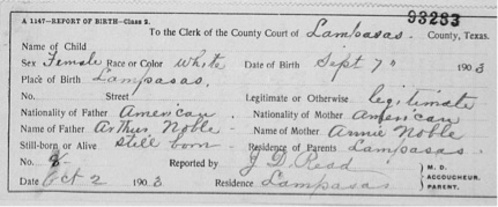 A 1147—REPORT OF BIRTH—Class 2. 93283
To the Clerk of the County Court of Lampasas. County, Texas.
Name of Child
Sex Female Race or Color White Date of Birth Sept 7" 1903
Place of Birth Lampasas,
No. Street Legitimate or Otherwise legitimate
Nationality of Father American Nationality of Mother American
Name of Father Arthur Noble - Name of Mother Annie Noble
Still-born or Alive Still born - Residence of Parents Lampasas.
No. 8- Reported by J D. Read M. D.
ACCOUCHEUR.
Date Oct 2 1903 Residence Lampasas PARENT.